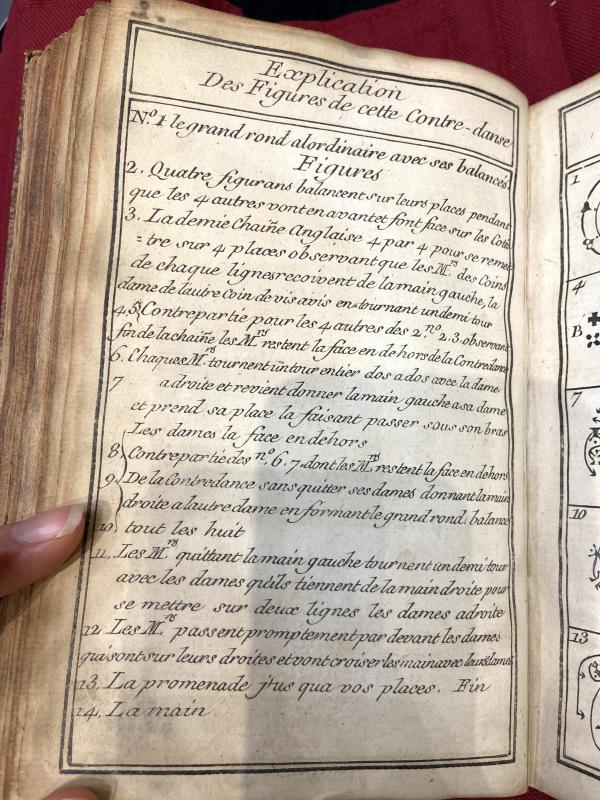 Explication
Des Figures de cette Contre-danse
N.º 1 le grand rond alordinaire avec ses balancés
Figures
2. Quatre figurans balancent sur leurs places pendant
que les 4 autres vont en avant et font face sur les Coté
3. La demie Chaiñe Anglaise 4 par 4 pour se remet
=tre sur 4 places observant que les M.rs des Coins
de chaque lignes recoivent de la main gauche, la
dame de l'autre Coin de vis avis en tournant un demi tour
4.5. Contrepartie pour les 4 autres des 2. nº 2.3. observant
fin de la chaiñe les M.rs restent la face en dehors de la Contredance
6. Chaques M.rs tournent un tour entier dos a dos avec la dame
7 a droite et revient donner la main gauche a sa dame
et prend sa place la faisant passer sous son bras
Les dames la face en dehors
8 Contrepartie des nº 6.7. dont les M.rs restent la face en dehors
9. De la Contredance sans quitter ses dames donnant la main
droite a lautre dame en formant le grand rond, balance
10. tout les huit
11. Les M.rs quittant la main gauche tournent un demi tour
avec les dames qu'ils tiennent de la main droite pour
se mettre sur deux lignes les dames a droite
12. Les M.rs passent promptement par devant les dames
qui sont sur leurs droites et vont croiser les main avec leurs dames
13. La promenade jus qua vos places. Fin
14. La main
1
4
B
7
10
13